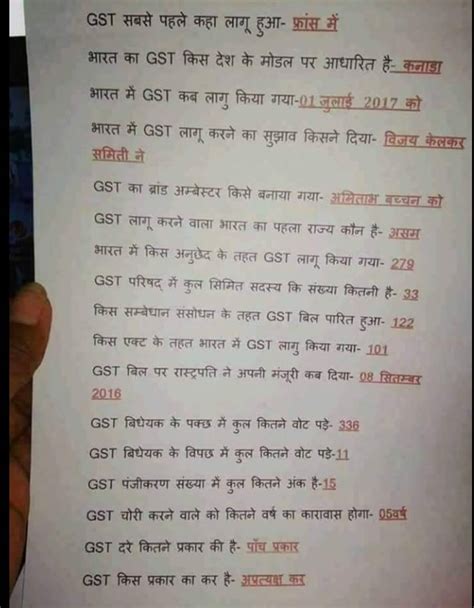 GST सबसे पहले कहा लागू हुआ- फ्रांस में
भारत का GST किस देश के मोडल पर आधारित है- कनाडा
भारत में GST कब लागु किया गया-01 जुलाई 2017 को
भारत में GST लागू करने का सुझाव किसने दिया- विजय केलकर
समिती ने
GST का ब्रांड अम्बेस्टर किसे बनाया गया- अमिताभ बच्चन को
GST लागू करने वाला भारत का पहला राज्य कौन है- असम
भारत में किस अनुछेद के तहत GST लागू किया गया- 279
GST परिषद् में कुल सिमित सदस्य कि संख्या कितनी है- 33
किस सम्बेधान संसोधन के तहत GST बिल पारित हुआ- 122
किस एक्ट के तहत भारत में GST लागु किया गया- 101
GST बिल पर रास्ट्रपति ने अपनी मंजूरी कब दिया- 08 सितम्बर
2016
GST बिधेयक के पक्छ में कुल कितने वोट पड़े- 336
GST बिधेयक के विपछ में कुल कितने वोट पड़े-11
GST पंजीकरण संख्या में कुल कितने अंक है-15
GST चोरी करने वाले को कितने वर्ष का कारावास होगा- 05वर्ष
GST दरे कितने प्रकार की है- पाँच प्रकार
GST किस प्रकार का कर है- अप्रत्यक्ष कर